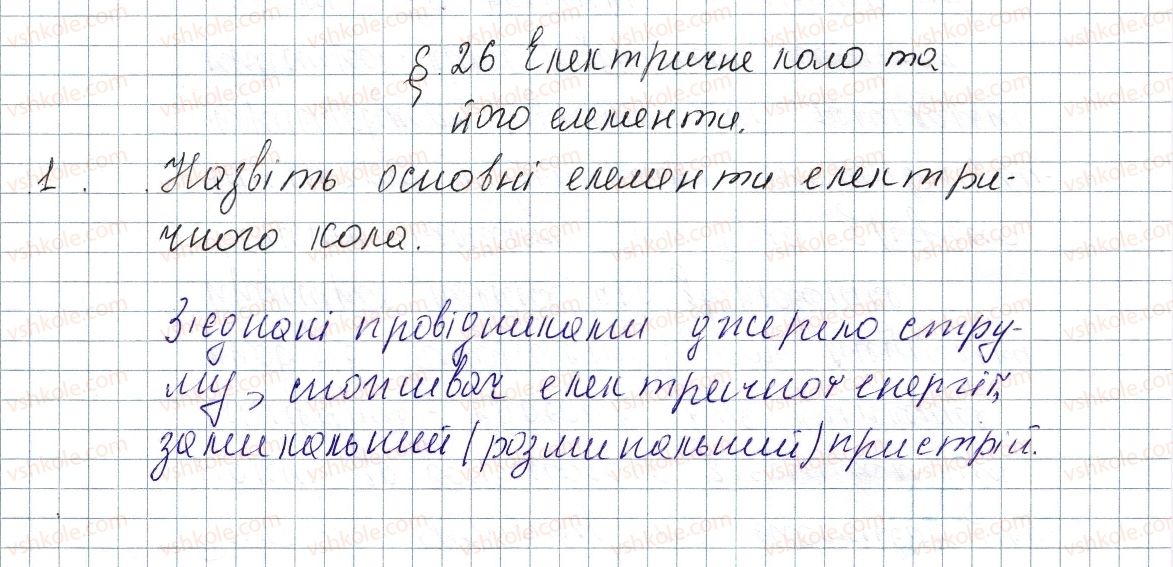 § 26 Електричне коло та
його елементи.
1. Назвіть основні елементи електри-
чного кола.
З'єднані провідниками джерело стру-
му, споживач електричної енергії,
замикальний (розмикальний) пристрій.